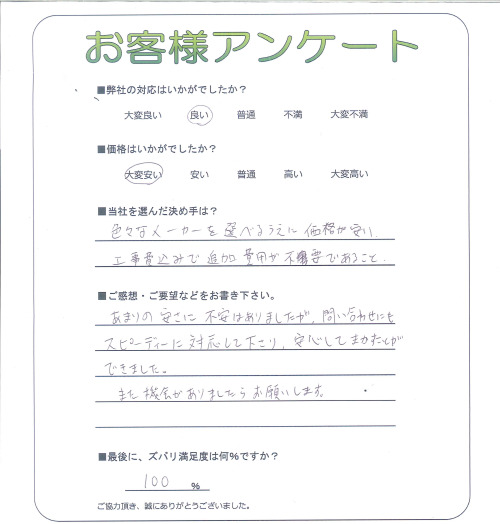 お客様アンケート
■弊社の対応はいかがでしたか？
大変良い 良い 普通 不満 大変不満
■価格はいかがでしたか？
大変安い 安い 普通 高い 大変高い
■当社を選んだ決め手は？
色々なメーカーを選べるうえに価格が安い.
工事費込みで追加費用が不要であること.
■ご感想・ご要望などをお書き下さい。
あまりの安さに不安はありましたが、問い合わせにも
スピーディーに対応して下さり、安心してまかせることが
できました。
また機会がありましたらお願いします。
■最後に、ズバリ満足度は何%ですか？
100 %
ご協力頂き、誠にありがとうございました。